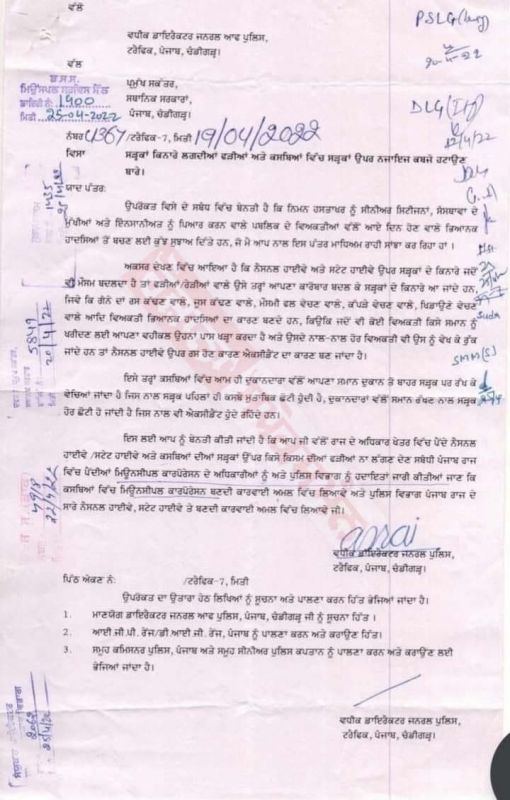 ਵੱਲੋਂ
ਵਧੀਕ ਡਾਇਰੈਕਟਰ ਜਨਰਲ ਆਫ ਪੁਲਿਸ,
ਟਰੈਫਿਕ, ਪੰਜਾਬ, ਚੰਡੀਗੜ੍ਹ।
ਵੱਲ
ਪ੍ਰਮੁੱਖ ਸਕੱਤਰ,
ਸਥਾਨਿਕ ਸਰਕਾਰਾਂ,
ਪੰਜਾਬ, ਚੰਡੀਗੜ੍ਹ।
ਡਾਇਰੀ ਨੰ: 1900
ਮਿਤੀ 25-04-2022
ਨੰਬਰ 4367/ਟਰੈਫਿਕ-7, ਮਿਤੀ 19/04/2022
ਵਿਸਾ ਸੜ੍ਹਕਾਂ ਕਿਨਾਰੇ ਲਗਦੀਆਂ ਫੜੀਆਂ ਅਤੇ ਕਸਬਿਆਂ ਵਿੱਚ ਸੜ੍ਹਕਾਂ ਉਪਰ ਨਜਾਇਜ ਕਬਜੇ ਹਟਾਉਣ
ਬਾਰੇ।
ਯਾਦ ਪੱਤਰ:
ਉਪਰੋਕਤ ਵਿਸੇ ਦੇ ਸਬੰਧ ਵਿੱਚ ਬੇਨਤੀ ਹੈ ਕਿ ਨਿਮਨ ਹਸਤਾਖਰ ਨੂੰ ਸੀਨੀਅਰ ਸਿਟੀਜਨਾਂ, ਸੰਸਥਾਵਾਂ ਦੇ
ਮੁੱਖੀਆਂ ਅਤੇ ਇੰਨਸਾਨੀਅਤ ਨੂੰ ਪਿਆਰ ਕਰਨ ਵਾਲੇ ਪਬਲਿਕ ਦੇ ਵਿਅਕਤੀਆਂ ਵੱਲੋਂ ਆਏ ਦਿਨ ਹੋਣ ਵਾਲੇ ਭਿਆਨਕ
ਹਾਦਸਿਆਂ ਤੋਂ ਬਚਣ ਲਈ ਕੁੱਝ ਸੁਝਾਅ ਦਿੱਤੇ ਹਨ, ਜੋ ਮੈ ਆਪ ਨਾਲ ਇਸ ਪੱਤਰ ਮਾਧਿਅਮ ਰਾਹੀ ਸਾਂਭਾ ਕਰ ਰਿਹਾ ਹਾਂ ।
ਅਕਸਰ ਦੇਖਣ ਵਿੱਚ ਆਇਆ ਹੈ ਕਿ ਨੈਸਨਲ ਹਾਈਵੇ ਅਤੇ ਸਟੇਟ ਹਾਈਵੇ ਉਪਰ ਸੜ੍ਹਕਾਂ ਦੇ ਕਿਨਾਰੇ ਜਦੋਂ
ਵੀ ਮੌਸਮ ਬਦਲਦਾ ਹੈ ਤਾਂ ਫੜੀਆਂ/ਰੇੜੀਆਂ ਵਾਲੇ ਉਸੇ ਤਰ੍ਹਾਂ ਆਪਣਾ ਕਾਰੋਬਾਰ ਬਦਲ ਕੇ ਸੜ੍ਹਕਾਂ ਦੇ ਕਿਨਾਰੇ ਆ ਜਾਂਦੇ ਹਨ,
ਜਿਵੇ ਕਿ ਗੰਨੇ ਦਾਂ ਰਸ ਕੱਢਣ ਵਾਲੇ, ਜੂਸ ਕੱਢਣ ਵਾਲੇ, ਮੌਸਮੀ ਫਲ ਵੇਚਣ ਵਾਲੇ, ਕੱਪੜੇ ਵੇਚਣ ਵਾਲੇ, ਖਿਡਾਉਣੇ ਵੇਚਣ
ਵਾਲੇ ਆਦਿ ਵਿਅਕਤੀ ਭਿਆਨਕ ਹਾਦਸਿਆਂ ਦਾ ਕਾਰਣ ਬਣਦੇ ਹਨ, ਕਿਉਕਿ ਜਦੋਂ ਵੀ ਕੋਈ ਵਿਅਕਤੀ ਕਿਸੇ ਸਮਾਨ ਨੂੰ
ਖਰੀਦਣ ਲਈ ਆਪਣਾ ਵਹੀਕਲ ਉਹਨਾਂ ਪਾਸ ਖੜ੍ਹਾ ਕਰਦਾ ਹੈ ਅਤੇ ਉਸਦੇ ਨਾਲ-ਨਾਲ ਹੋਰ ਵਿਅਕਤੀ ਵੀ ਉਸ ਨੂੰ ਵੇਖ ਕੇ ਰੁੱਕ
ਜਾਂਦੇ ਹਨ ਤਾਂ ਨੈਸਨਲ ਹਾਈਵੇ ਉਪਰ ਰਸ ਹੋਣ ਕਾਰਣ ਐਕਸੀਡੈਂਟ ਦਾ ਕਾਰਣ ਬਣ ਜਾਂਦਾ ਹੈ।
ਇਸੇ ਤਰ੍ਹਾਂ ਕਸਬਿਆਂ ਵਿੱਚ ਆਮ ਹੀ ਦੁਕਾਨਦਾਰਾ ਵੱਲੋਂ ਆਪਣਾ ਸਮਾਨ ਦੁਕਾਨ ਤੋਂ ਬਾਹਰ ਸੜਕ ਪਰ ਰੱਖ ਕੇ
ਵੇਚਿਆਂ ਜਾਂਦਾ ਹੈ ਜਿਸ ਨਾਲ ਸੜਕ ਪਹਿਲਾਂ ਹੀ ਕਸਬੇ ਮੁਤਾਬਿਕ ਛੋਟੀ ਹੁੰਦੀ ਹੈ, ਦੁਕਾਨਦਾਰਾਂ ਵੱਲੋਂ ਸਮਾਨ ਰੱਖਣ ਨਾਲ ਸੜਕ
ਹੋਰ ਛੋਟੀ ਹੋ ਜਾਂਦੀ ਹੈ ਜਿਸ ਨਾਲ ਵੀ ਐਕਸੀਡੈਂਟ ਹੁੰਦੇ ਰਹਿੰਦੇ ਹਨ।
ਇਸ ਲਈ ਆਪ ਨੂੰ ਬੇਨਤੀ ਕੀਤੀ ਜਾਂਦੀ ਹੈ ਕਿ ਆਪ ਜੀ ਵੱਲੋਂ ਰਾਜ ਦੇ ਅਧਿਕਾਰ ਖੇਤਰ ਵਿੱਚ ਪੈਂਦੇ ਨੈਸਨਲ
ਹਾਈਵੇ /ਸਟੇਟ ਹਾਈਵੇ ਅਤੇ ਕਸਬਿਆਂ ਦੀਆਂ ਸੜਕਾਂ ਉੱਪਰ ਕਿਸੇ ਕਿਸਮ ਦੀਆਂ ਫੜੀਆਂ ਨਾ ਲੱਗਣ ਦੇਣ ਸਬੰਧੀ ਪੰਜਾਬ ਰਾਜ
ਵਿੱਚ ਪੈਂਦੀਆਂ ਮਿਊਨਸੀਪਲ ਕਾਰਪੋਰੇਸਨ ਦੇ ਅਧਿਕਾਰੀਆਂ ਨੂੰ ਅਤੇ ਪੁਲਿਸ ਵਿਭਾਗ ਨੂੰ ਹਦਾਇਤਾਂ ਜਾਰੀ ਕੀਤੀਆਂ ਜਾਣ ਕਿ
ਕਸਬਿਆਂ ਵਿੱਚ ਮਿਊਨਸੀਪਲ ਕਾਰਪੋਰੇਸਨ ਬਣਦੀ ਕਾਰਵਾਈ ਅਮਲ ਵਿੱਚ ਲਿਆਵੇ ਅਤੇ ਪੁਲਿਸ ਵਿਭਾਗ ਪੰਜਾਬ ਰਾਜ ਦੇ
ਸਾਰੇ ਨੈਸਨਲ ਹਾਈਵੇ, ਸਟੇਟ ਹਾਈਵੇ ਤੇ ਬਣਦੀ ਕਾਰਵਾਈ ਅਮਲ ਵਿੱਚ ਲਿਆਵੇ ਜੀ।
ਵਧੀਕ ਡਾਇਰੈਕਟਰ ਜਨਰਲ ਪੁਲਿਸ,
ਟਰੈਫਿਕ, ਪੰਜਾਬ, ਚੰਡੀਗੜ੍ਹ।
ਪਿੱਠ ਅੰਕਣ ਨੰ: /ਟਰੈਫਿਕ-7, ਮਿਤੀ
ਉਪਰੋਕਤ ਦਾ ਉਤਾਰਾ ਹੇਠ ਲਿਖਿਆਂ ਨੂੰ ਸੂਚਨਾ ਅਤੇ ਪਾਲਣਾ ਕਰਨ ਹਿੱਤ ਭੇਜਿਆਂ ਜਾਂਦਾ ਹੈ।
1. ਮਾਣਯੋਗ ਡਾਇਰੈਕਟਰ ਜਨਰਲ ਆਫ ਪੁਲਿਸ, ਪੰਜਾਬ, ਚੰਡੀਗੜ੍ਹ ਜੀ ਨੂੰ ਸੂਚਨਾ ਹਿੱਤ ।
2. ਆਈ.ਜੀ.ਪੀ. ਰੇਂਜ/ਡੀ.ਆਈ.ਜੀ. ਰੇਂਜ, ਪੰਜਾਬ ਨੂੰ ਪਾਲਣਾ ਕਰਨ ਅਤੇ ਕਰਾਉਣ ਹਿੱਤ।
3. ਸਮੂਹ ਕਮਿਸਨਰ ਪੁਲਿਸ, ਪੰਜਾਬ ਅਤੇ ਸਮੂਹ ਸੀਨੀਅਰ ਪੁਲਿਸ ਕਪਤਾਨ ਨੂੰ ਪਾਲਣਾ ਕਰਨ ਅਤੇ ਕਰਾਉਣ ਲਈ
ਭੇਜਿਆਂ ਜਾਂਦਾ ਹੈ।
ਵਧੀਕ ਡਾਇਰੈਕਟਰ ਜਨਰਲ ਪੁਲਿਸ,
ਟਰੈਫਿਕ, ਪੰਜਾਬ, ਚੰਡੀਗੜ੍ਹ।